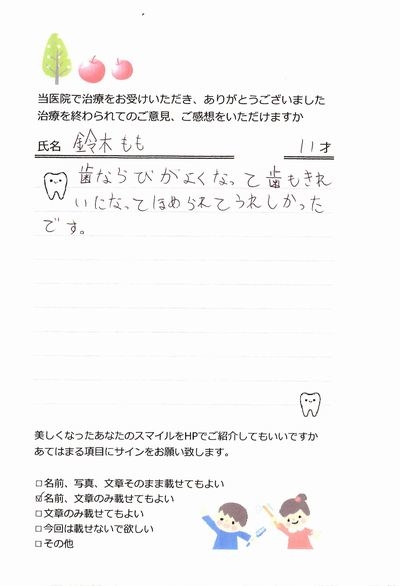 当医院で治療をお受けいただき、ありがとうございました
治療を終わられてのご意見、ご感想をいただけますか
氏名 鈴木もも 11才
歯ならびがよくなって歯もきれ
いになってほめられてうれしかった
です。
美しくなったあなたのスマイルをHPでご紹介してもいいですか
あてはまる項目にサインをお願い致します。
□名前、写真、文章そのまま載せてもよい
☑名前、文章のみ載せてもよい
□文章のみ載せてもよい
□今回は載せないで欲しい
□その他